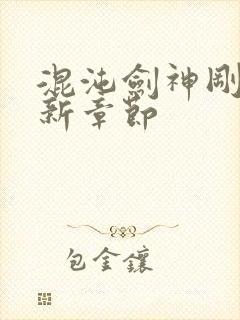 混沌劍神剛
新章節
包金鑲